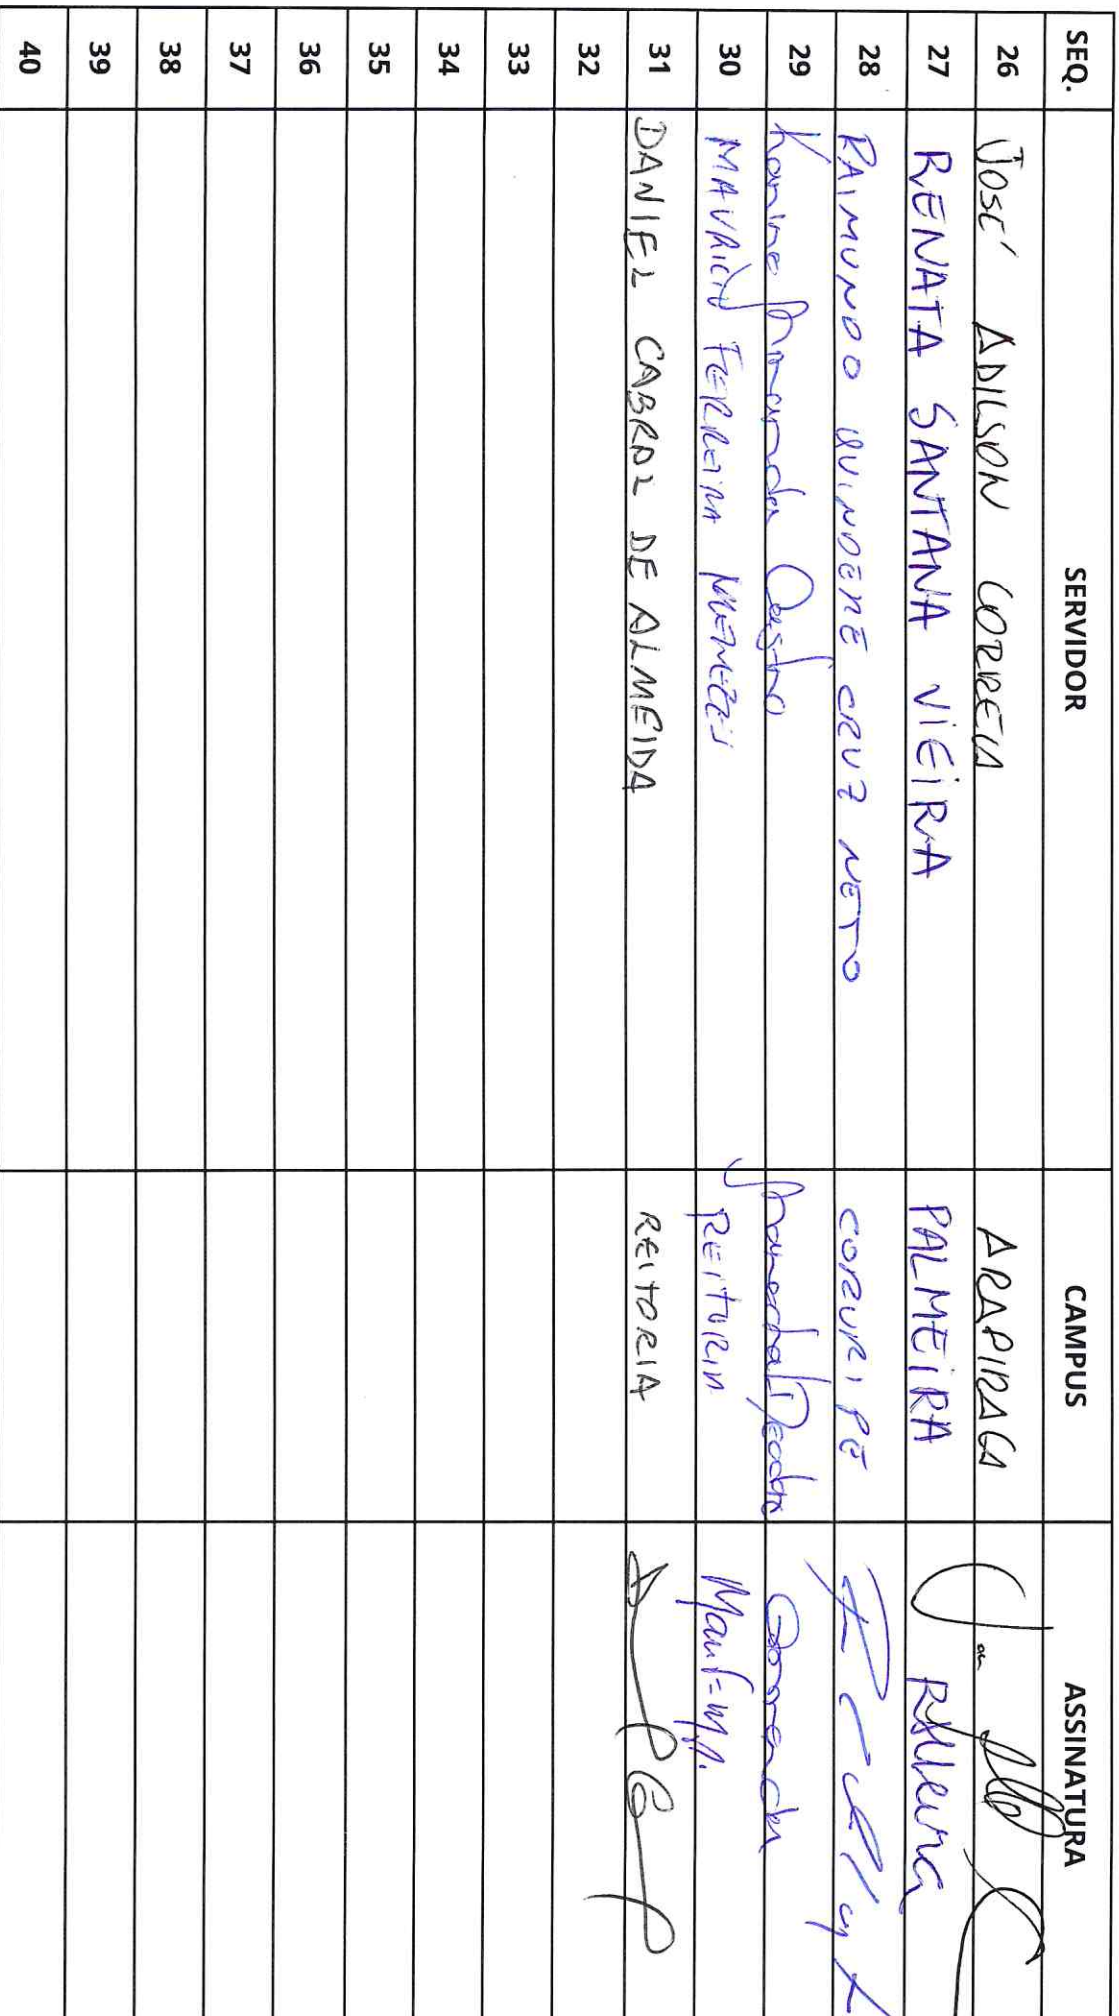 SEQ. SERVIDOR CAMPUS ASSINATURA
26 JOSÉ ADILSON CORREIA ARAPIRACA
27 RENATA SANTANA VIEIRA PALMEIRA RSVieira
28 RAIMUNDO QUINDERÉ CRUZ NETO CORURIPE
29 Miranda Castro Marechal Deodoro
30 MAURÍCIO FERREIRA MENEZES REITORIA
31 DANIEL CABRAL DE ALMEIDA REITORIA
32
33
34
35
36
37
38
39
40